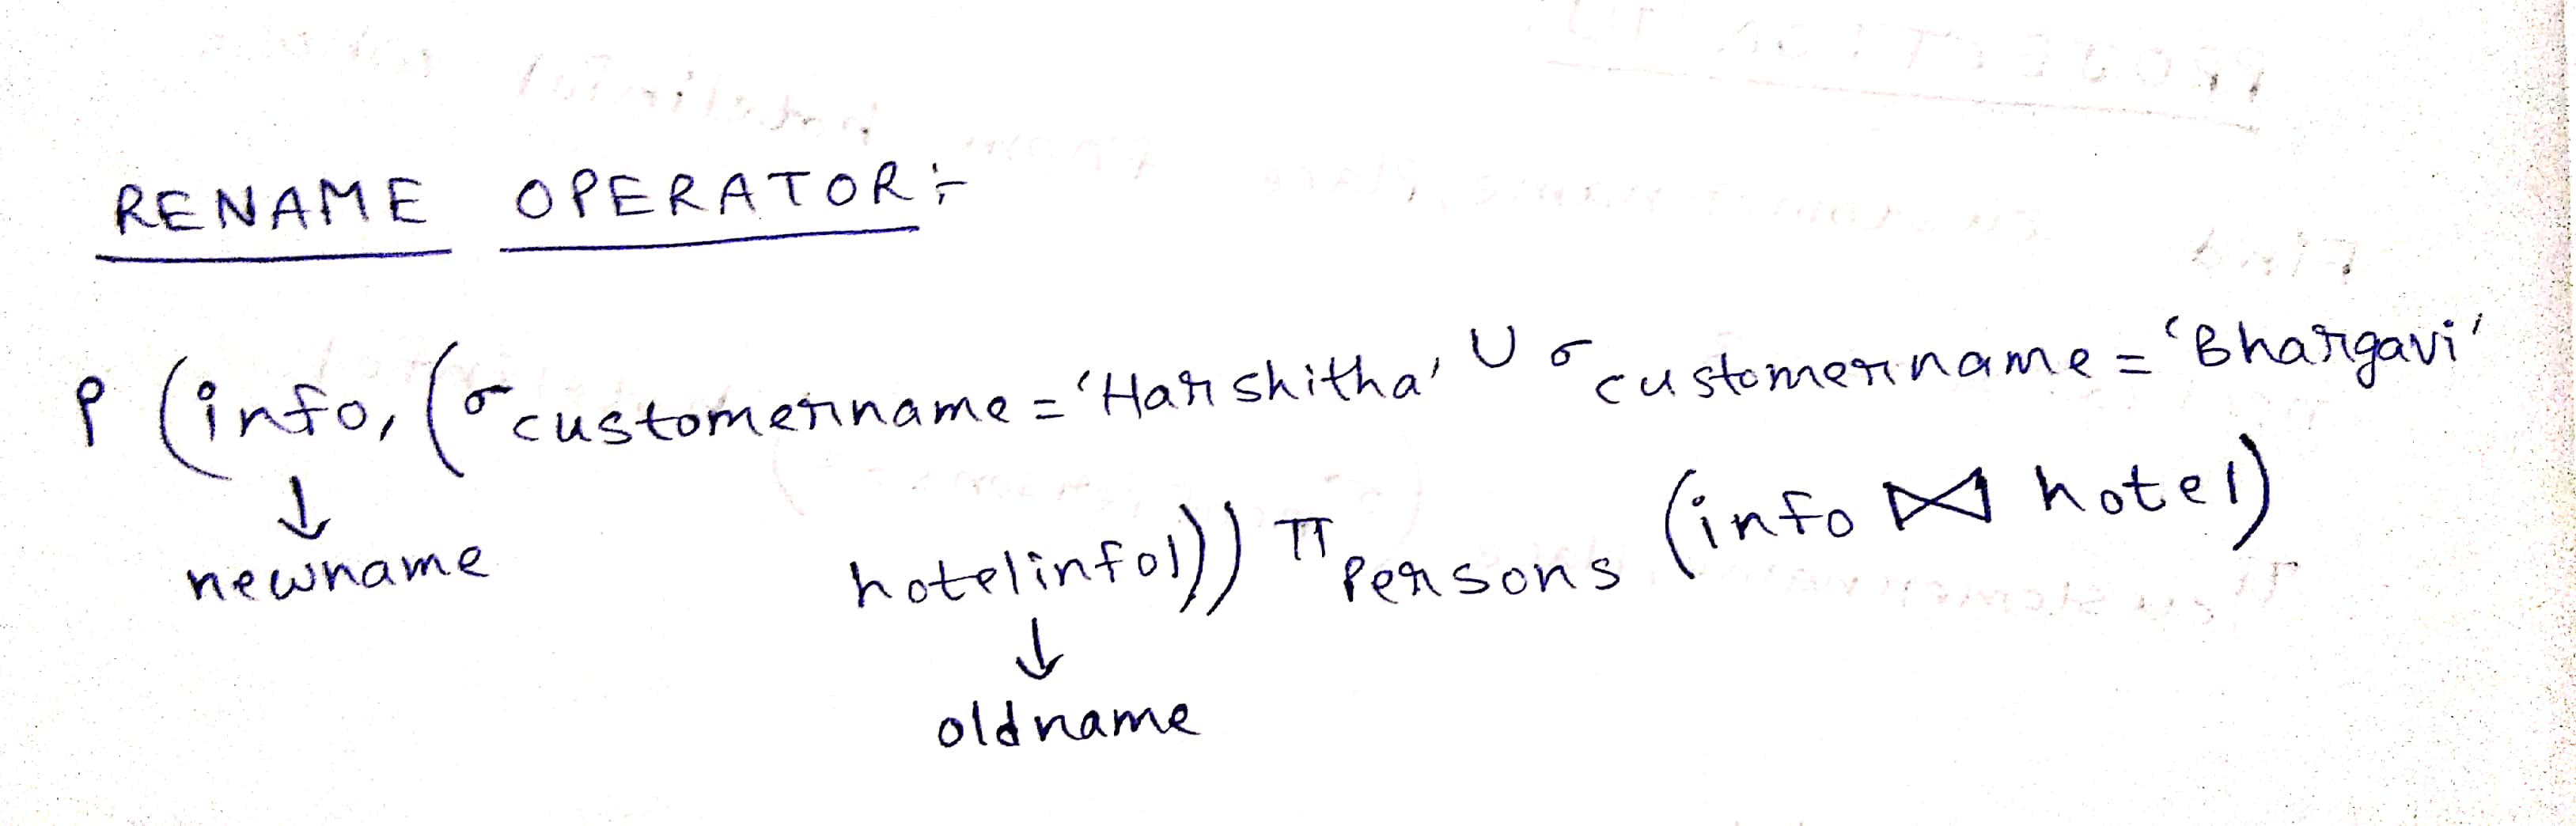 RENAME OPERATOR:-
ρ (info, (σ customername = 'Harshitha' ∪ σ customername = 'Bhargavi'
↓
newname
hotelinfo1)) π Persons (info ⋈ hotel)
↓
oldname